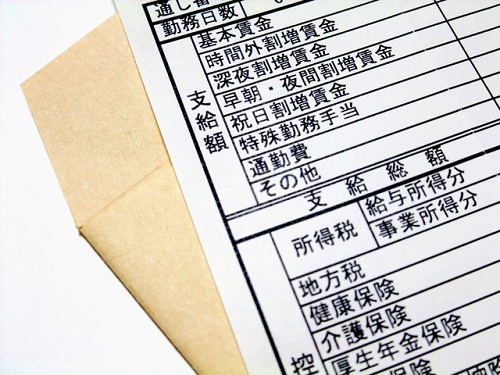 通し番
勤務日数
支給額
基本賃金
時間外割増賃金
深夜割増賃金
早朝・夜間割増賃金
祝日割増賃金
特殊勤務手当
通勤費
その他
支給総額
所得税
給与所得分
事業所得分
地方税
控
健康保険
介護保険
厚生年金保険